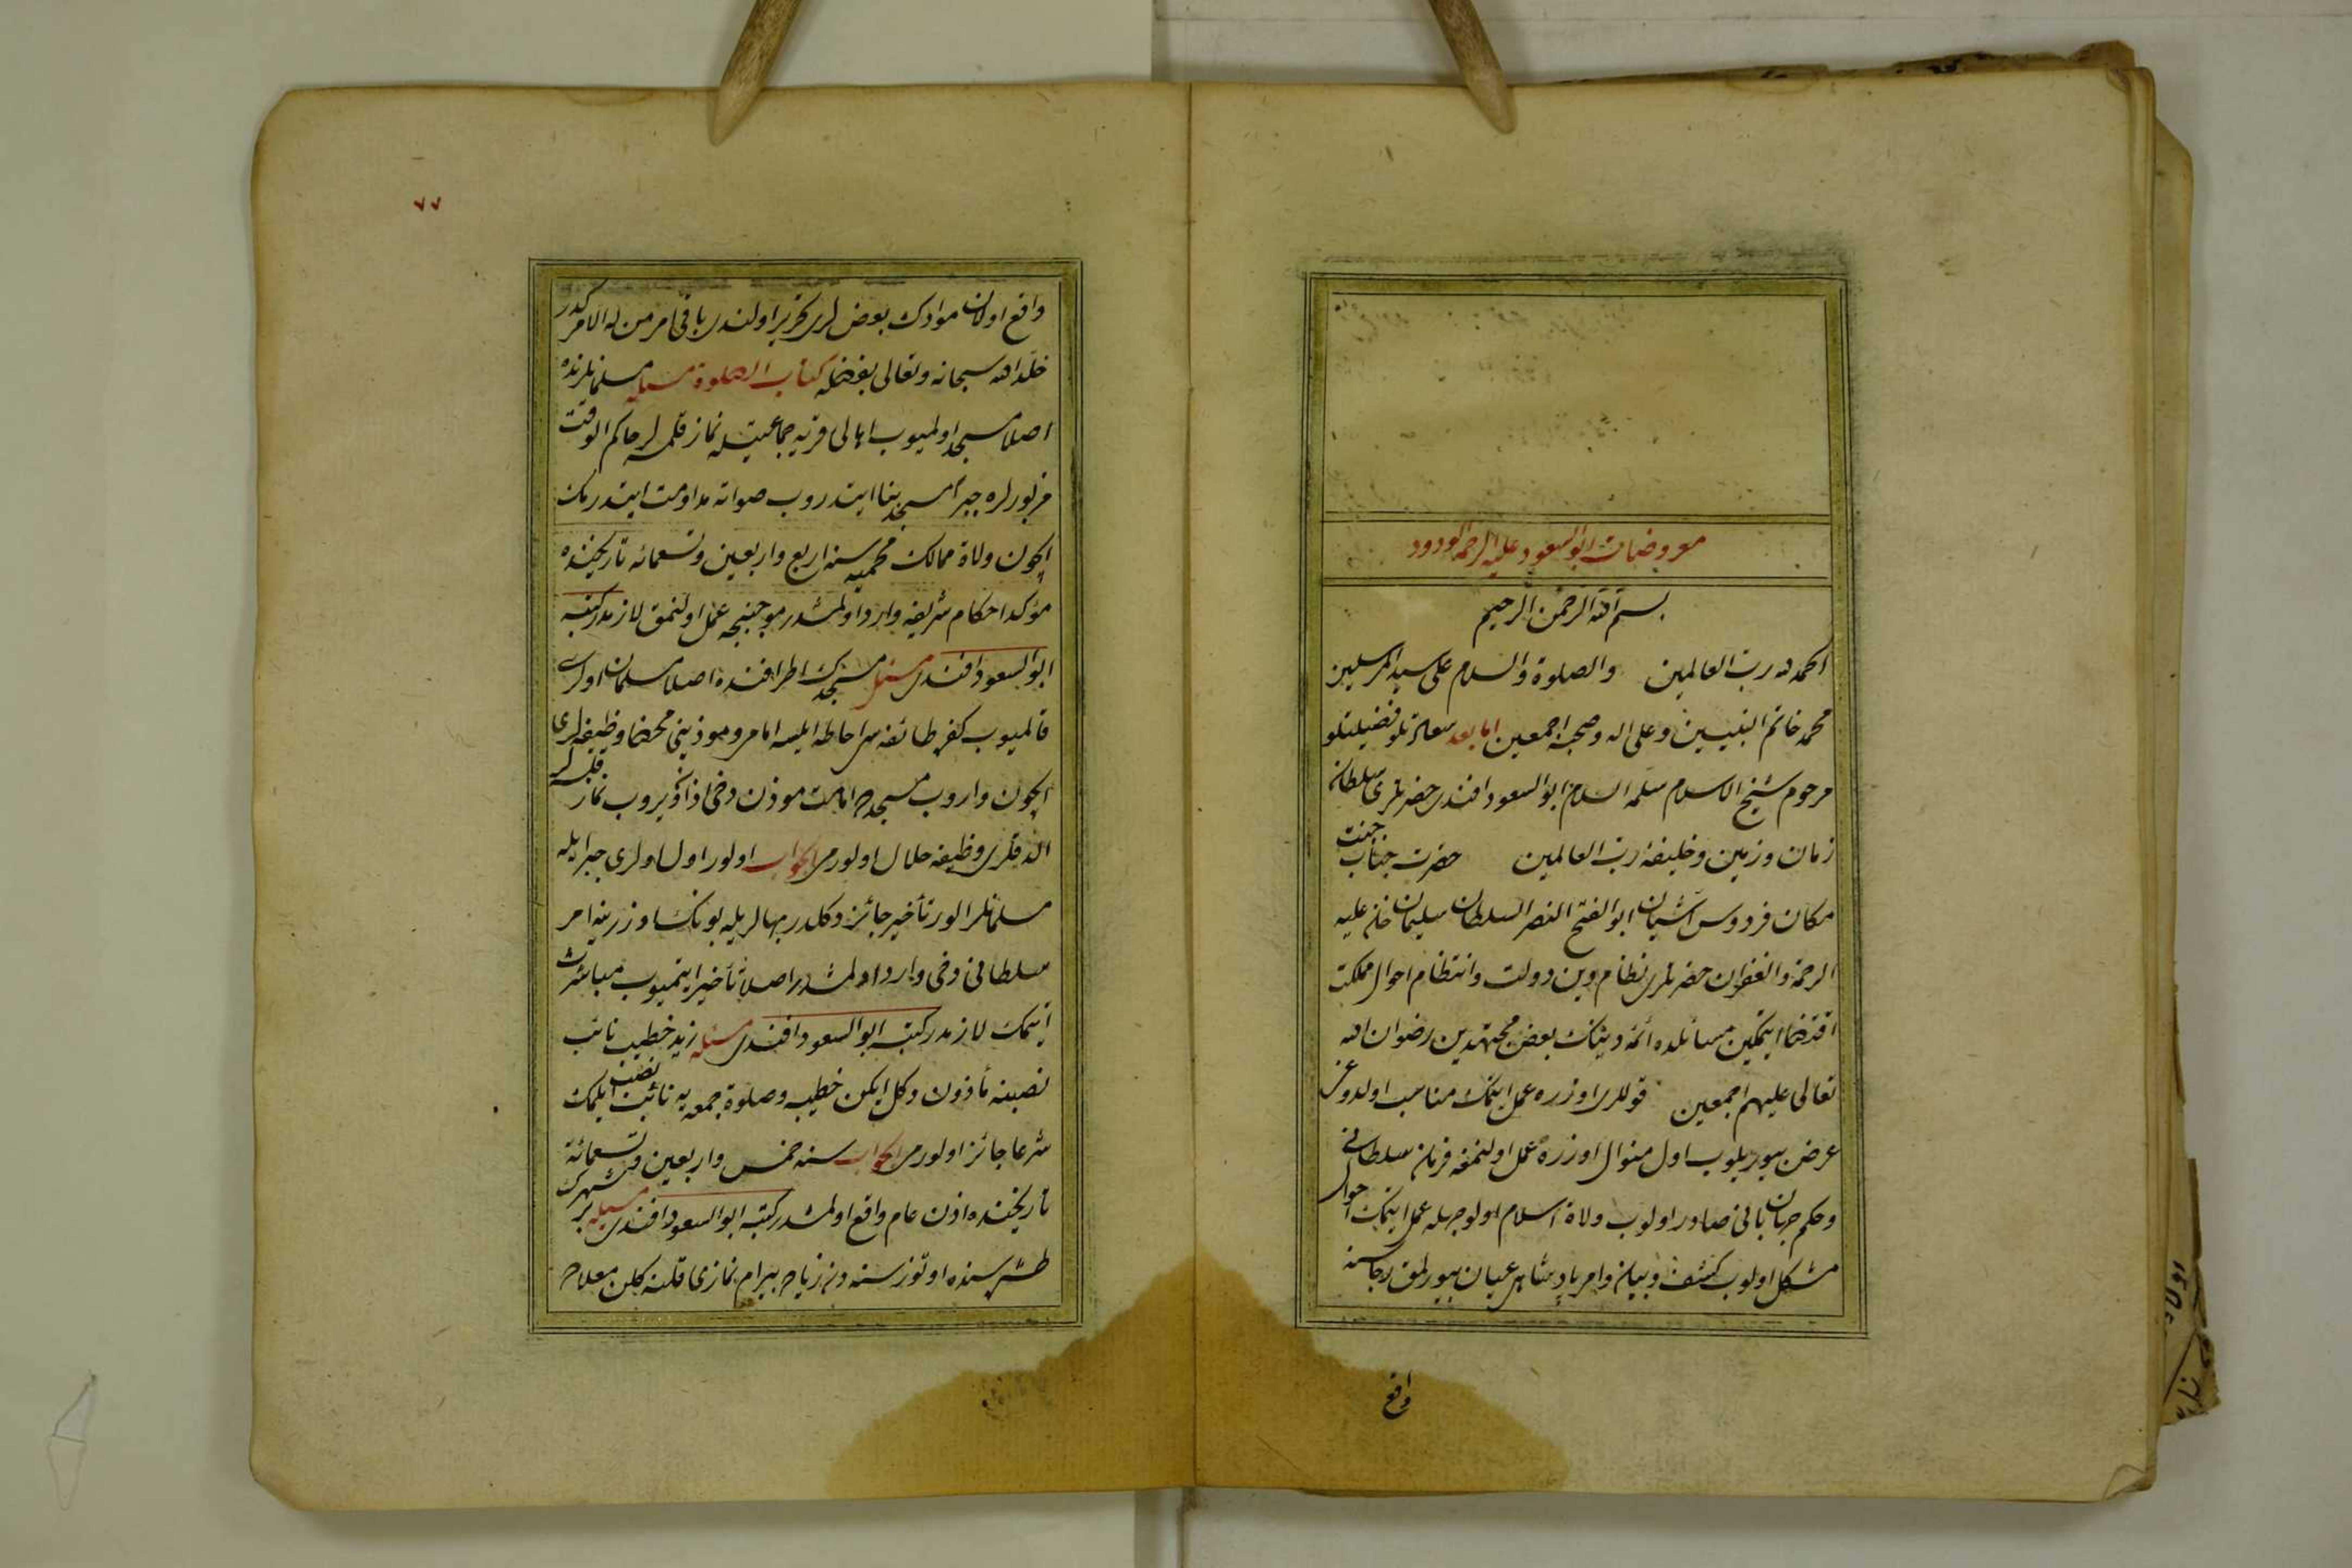 معروضات ابو السعود عليه الرحمه الودود
بسم الله الرحمن الرحيم
الحمد لله رب العالمين والصلوة والسلام على سيد المرسلين
محمد خاتم النبيين وعلى اله وصحبه اجمعين اما بعد سعادتلو فضيلتلو
مرحوم شيخ الاسلام سلمه السلام ابو السعود افندى حضرتلرى سلطان
زمان وزمين وخليفۀ رب العالمين حضرت جناب جنت
مكان فردوس آشيان ابو الفتح النصر السلطان سليمان خان عليه
الرحمة والغفران حضرتلرى نظام دين دولت وانتظام احوال مملكت
اقتضا ايتمكين مسائلده ائمۀ دينك بعض مجتهدين رضوان الله
تعالى عليهم اجمعين قوللرى اوزره عمل ايتمك مناسب اولدوغن
عرض بيوريلوب اول منوال اوزره عمل اولنمغه فرمان سلطانى
وحكم جهانبانى صادر اولوب ولاة اسلام اولوجهله عمل ايتمك احوال
مشكل اولوب كشف وبيان وامر پادشاهى عيان بيورلمق رجاسنه
واقع
٧٧
واقع اولان موادك بعض لرى تحرير اولندى باقى امر من له الامر كدر
خلد الله سبحانه وتعالى بفضله كتاب الصلوة مسئله مسلمانلرنده
اصلا مسجد اولميوب اهالى قريه جماعتيله نماز قلمسه لر حاكم الوقت
مزبورلره جبرا مسجد بنا ايتدروب صلواته مداومت ايتدرمك
ايچون ولاة ممالك محميه سنه اربع واربعين وتسعمائه تاريخنده
مؤكد احكام شريفه وارد اولمشدر موجبنجه عمل اولنمق لازمدر كتبه
ابو السعود افندى مسئله مسجدك اطرافنده اصلا مسلمان اولرى
قالميوب كفره طائفه سى احاطه ايلسه امام ومؤذنى محضا وظيفه لرى
ايچون واروب مسجده امامت مؤذن دخى اذان ويروب نماز قلسه لر
الدقلرى وظيفه حلال اولورمى الجواب اولور اول اولرى جبرايله
مسلمانلر الور تأخير جائز دكلدر بهالريله بونك اوزرينه امر
سلطانى دخى وارد اولمشدر اصلا تأخير ايتميوب مباشرت
ايتمك لازمدر كتبه ابو السعود افندى مسئله زيد خطيب نائب
نصبنه مأذون دكل ايكن خطيب وصلوة جمعه يه نائب نصب ايلمك
شرعا جائز اولورمى الجواب سنه خمس واربعين وتسعمائة
تاريخنده اذن عام واقع اولمشدر كتبه ابو السعود افندى مسئله بر شهرك
طشره سنده اوتوز سنه دن زياده بيرام نمازى قلنه كلن مصلاده